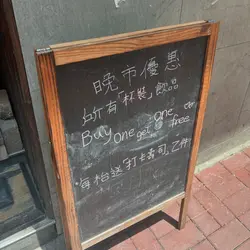 晚市優惠
所有「杯裝」飲品
Buy one get one free
每枱送「打卡壽司」乙件